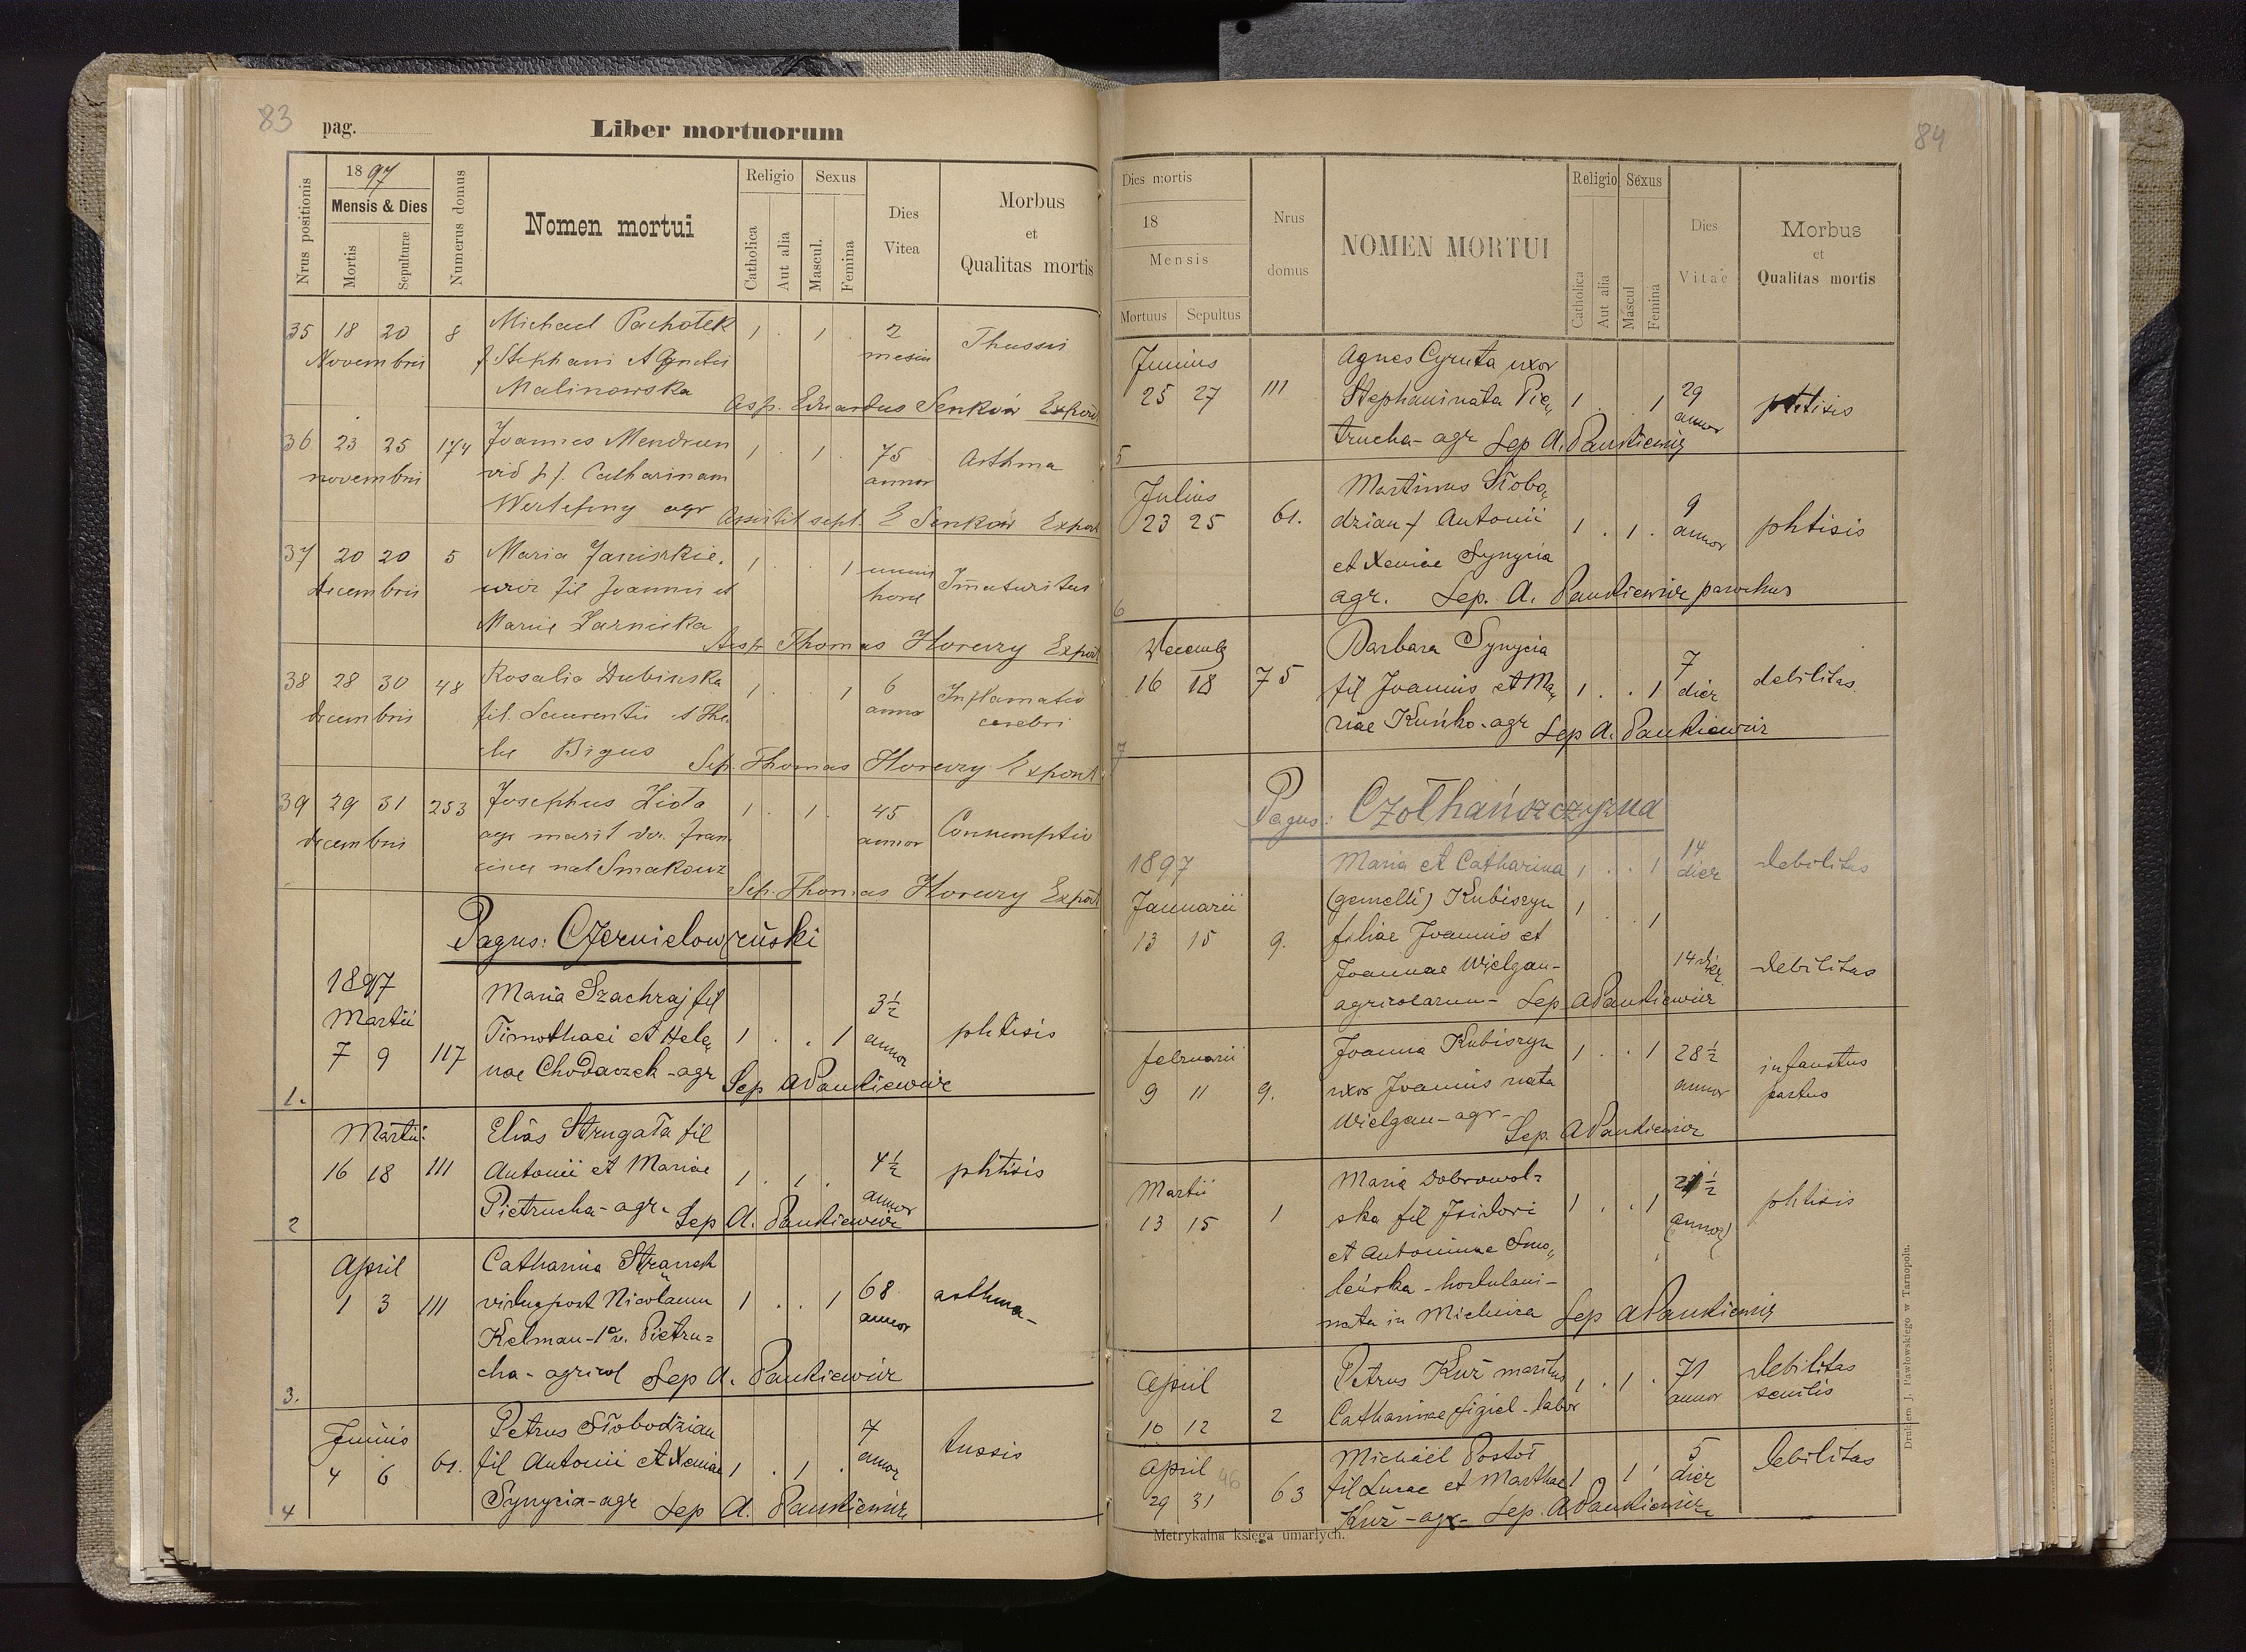 83 pag. Liber mortuorum
Nrus positionis
1897
Mensis & Dies
Mortis
Sepulturæ
Numerus domus
Nomen mortui
Religio
Catholica
Aut alia
Sexus
Mascul.
Femina
Dies
Vitea
Morbus
et
Qualitas mortis
35 18 20 8 Michael Pachołek 1 . 1 . 2 Thussis
Novembris f Stephani et Agnetis mesiu
Malinowska Asp. Eduardus Senków Expoñt
36 23 25 174 Joannes Mendrun 1 . 1 . 75 Asthma
novembris vid p f. Catharinam annor
agr Assistit sept. E Senków Expoñt
37 20 20 5 Maria Janiszkie. 1 . . 1 unius Im̄aturitas
decembris wicz fil Joannis et hore
Marie Zarniska Assp Thomas Horewy Expoñt
38 28 30 48 Rosalia Dubinska 1 . . 1 6 Inflamatio
decembris fil. Laurentii et The. anno cerebri
cle Bigus Sep. Thomas Horewy Expont
39 29 31 253 Josephus Ziota 1 . 1 . 45 Connumptio
decembris agr marit der. Fran. annor
cisce nat Smakouz
Sep. Thomas Horewy Expoñt
Pagus: Czernielow ruski
1897 Maria Szachraj fil 3½
Martii Timothaei et Hele„ 1 . . 1 annor phtisis
7 9 117 nae Chodaczek - agr Sep APankiewicz
1.
Martii Elias Strugała fil
16 18 111 Antonii et Mariae 1 . 1 . 4½ phtisis
Pietrucha - agr. Sep A. Pankiewicz annor
2
April Catharina Stranek
1 3 111 vidua post Nicolaum 1 . . 1 68 asthma -
Kelman - 1° v. Pietru= annor
cha - agricol Sep A. Pankiewicz
3.
Junius Petrus Słobodzian 7
4 6 61. fil Antonii et Xeniae 1 . 1 . annor tussis
Synycia - agr Sep A. Pankiewicz
4
84
Dies mortis
18
Mensis
Mortuus Sepultus
Nrus
domus
NOMEN MORTUI
Religio
Catholica
Aut alia
Sexus
Mascul
Femina
Dies
Vitae
Morbus
et
Qualitas mortis
Junius Agnes Cyruta uxor
25 27 111 Stephani nata Pie„ 1 . . 1 29 phtisis
trucha - agr Sep A. Pankiewicz annor
5
Julius Martinus Słobo„
23 25 61. dzian f Antonii 1 . 1 . 9 annor phtisis
et Xeniae Synycia
agr. Sep. A. Pankiewicz parochus
6
Decemb Barbara Synycia
16 18 75 fil Joannis et Ma„ 1 . . 1 7 dier debilitas
riae Kuńko - agr Sep A. Pankiewicz
7
Pagus: Czołhańszczyzna
1897 Maria et Catharina 1 . . 1 14 dier debilitas
Januarii (gemelli) Kubiszyn 1 . 1
13 15 9. filiae Joannis et
Joannae Wielgan - 14 dier debilitas
agricolarum - Sep APankiewicz
februarii Joanna Kubiszyn 1 . . 1 28½ infaustus
9 11 9. uxor Joannis nata annor partus
Wielgan - agr -
Sep. APankiewicz
Martii Maria Dobrowol= ½
13 15 1 ska fil Isidori 1 . . 1 annor phtisis
et Antoninae Smo„
leńska - hortulani -
nata in Sep APankiewicz
April Petrus Kuź maritus 1 . 1 . 71 debilitas
10 12 2 Catharinae Figiel - labor annor senilis
April 46 Michaël Postoł 5 debilitas
29 31 63 fil Lucae et Marthae 1 1 . dier
Kuź - agr - Sep. APankiewicz
Metrykalna księga umarłych.
Drukiem J. Pawłowskiego w Tarnopolu.